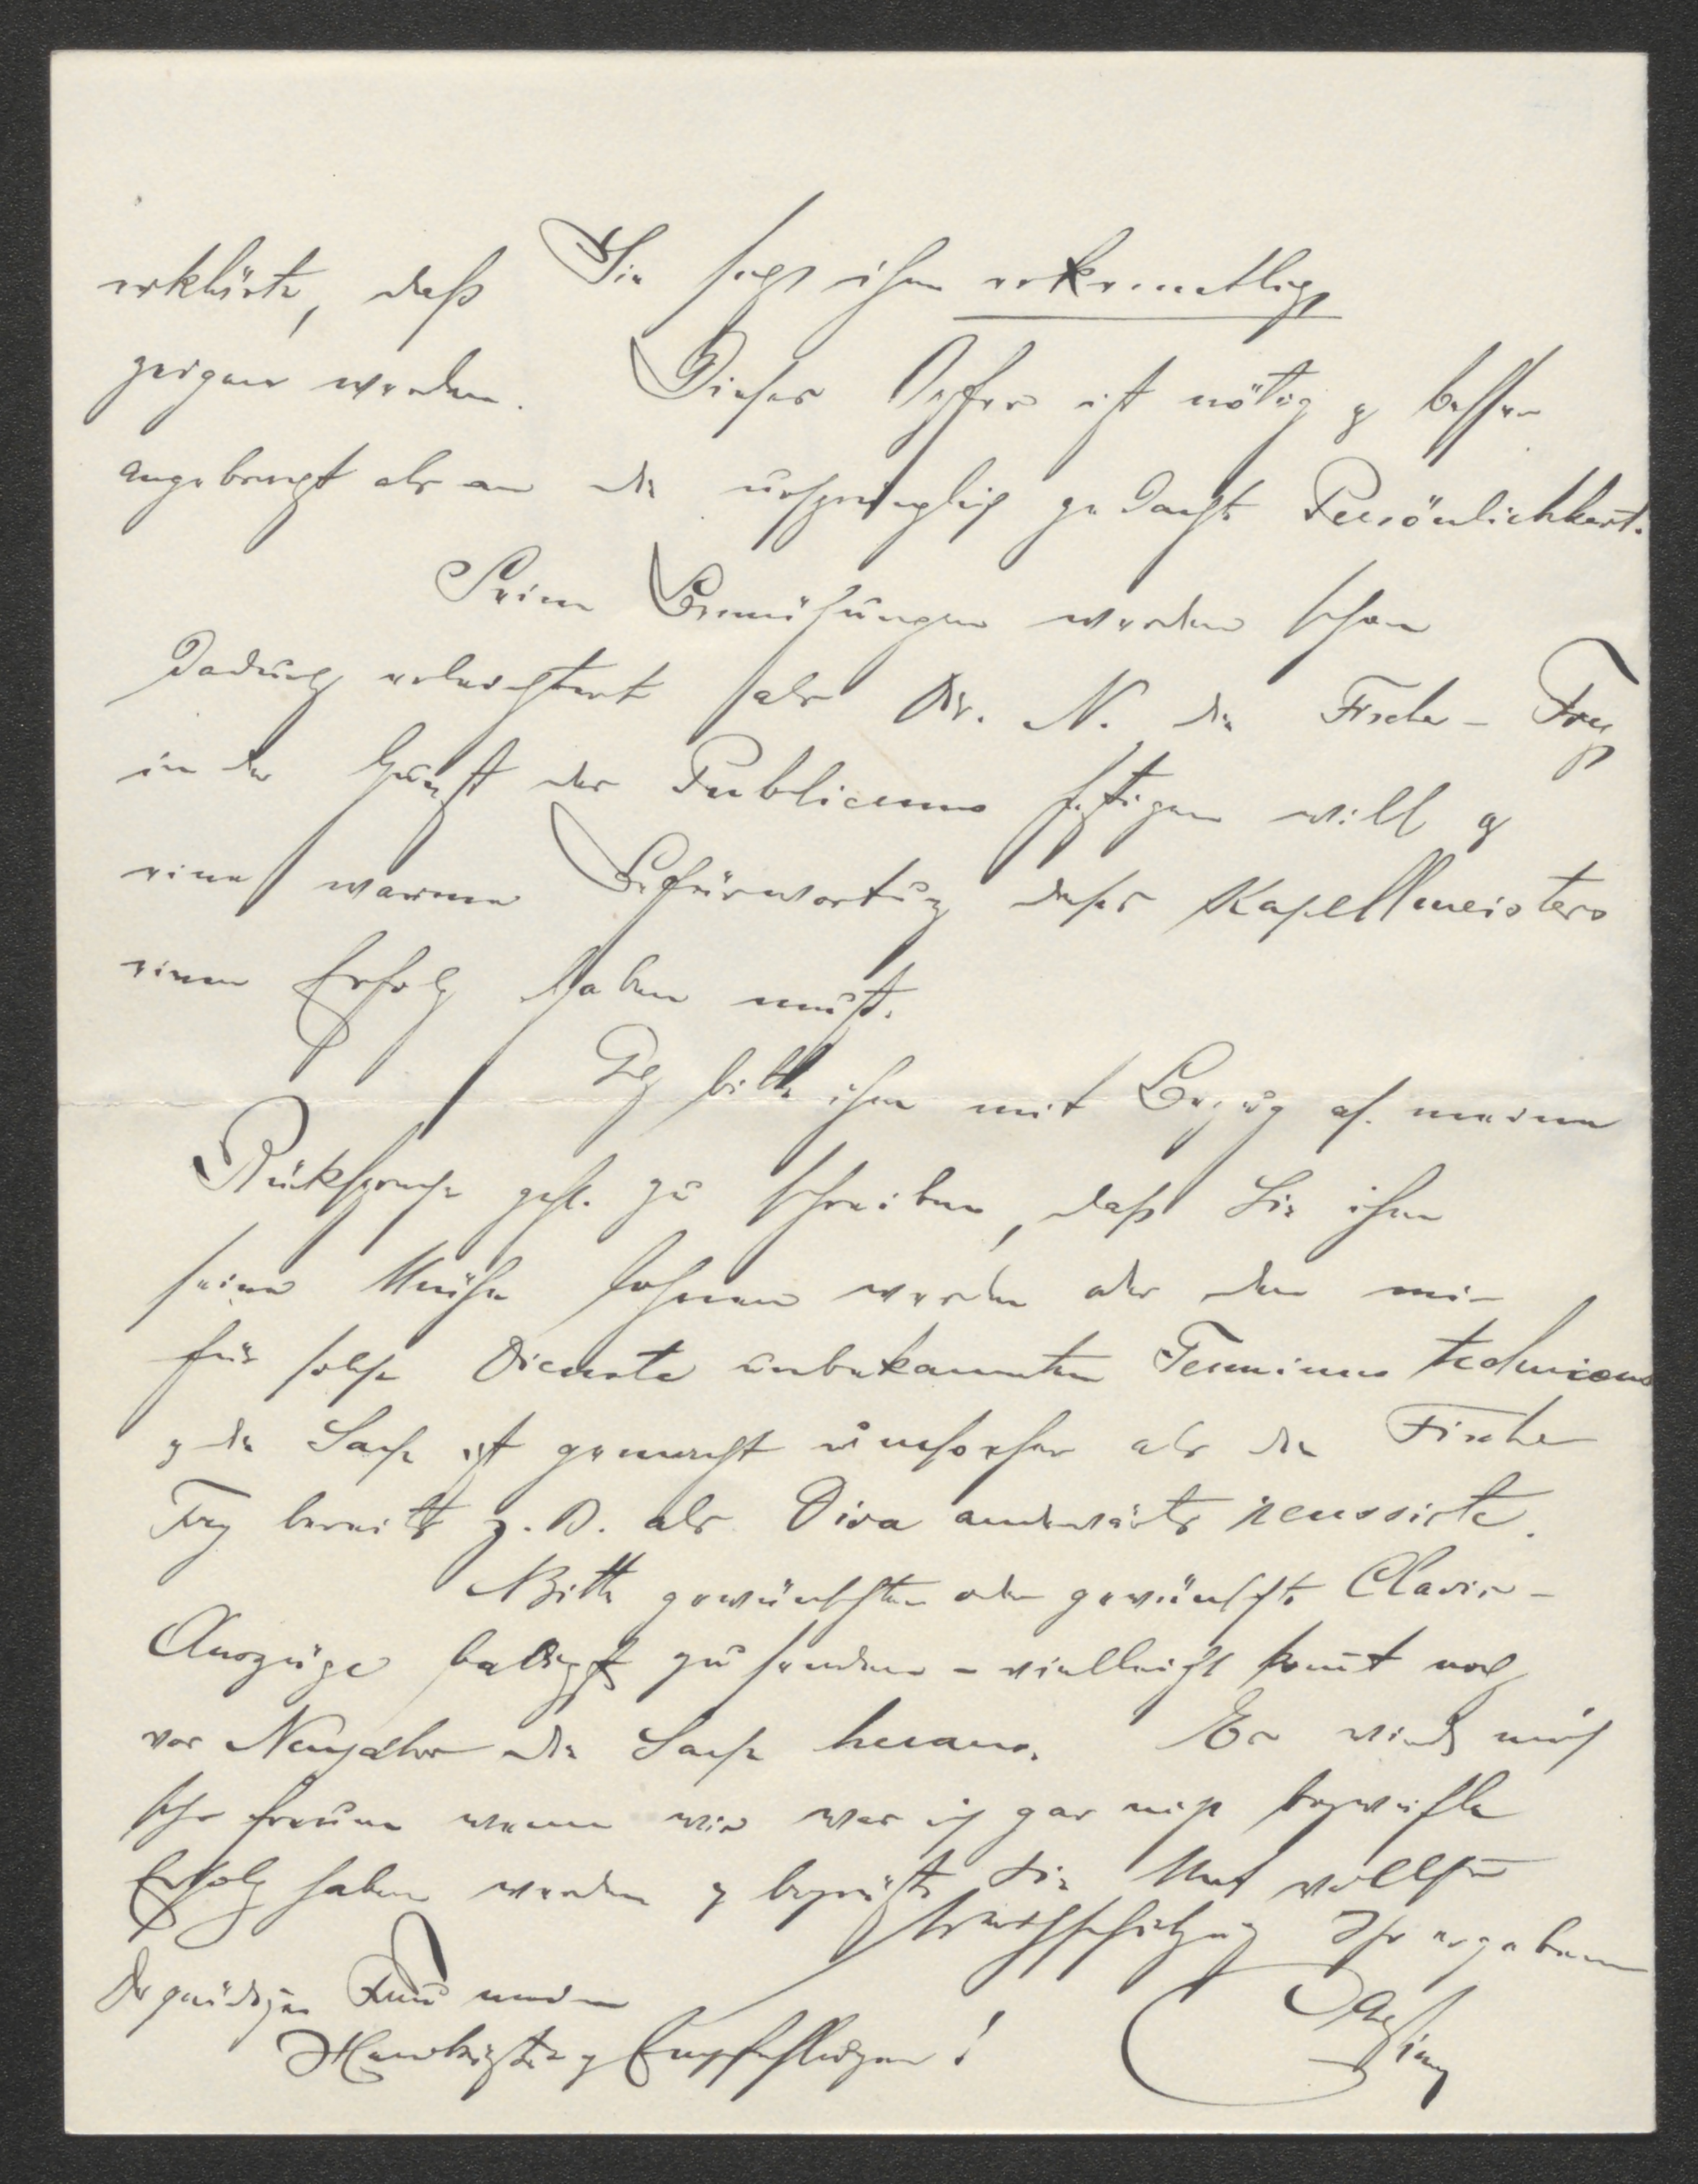 erklärte, daß Sie sich ihm erkenntlich
zeigen werden. Dieses Opfer ist nötig & besser
angebracht als an die ursprünglich gedachte Persönlichkeit.
Seine Bemühungen werden schon
dadurch erleichtert als Dir. N. die Fischer-Frey
in der Gunst des Publicums festigen will &
eine warme Befürwortung dieses Kapellmeisters
einen Erfolg haben muß.
Ich bitte ihm mit Bezug auf meine
Rücksprache gefl. zu schreiben, daß Sie ihm
seine Mühe lohnen werden oder den mir
für solche Dienste unbekannten Terminus technicus
& die Sache ist gemacht umsoeher als die Fischer
Frey bereits z. B. als Diva anderwärts reussirte.
Bitte gewünschten oder gewünschte Clavier-
Auszüge baldigst zu senden – vielleicht kommt noch
vor Neujahr die Sache heraus. Es wird mich
sehr freuen wenn wir was ich gar nicht bezweifle
Erfolg haben werden & begrüßt Sie
Ihr ergebener
Der gnädigen Frau meine
Empfehlungen!